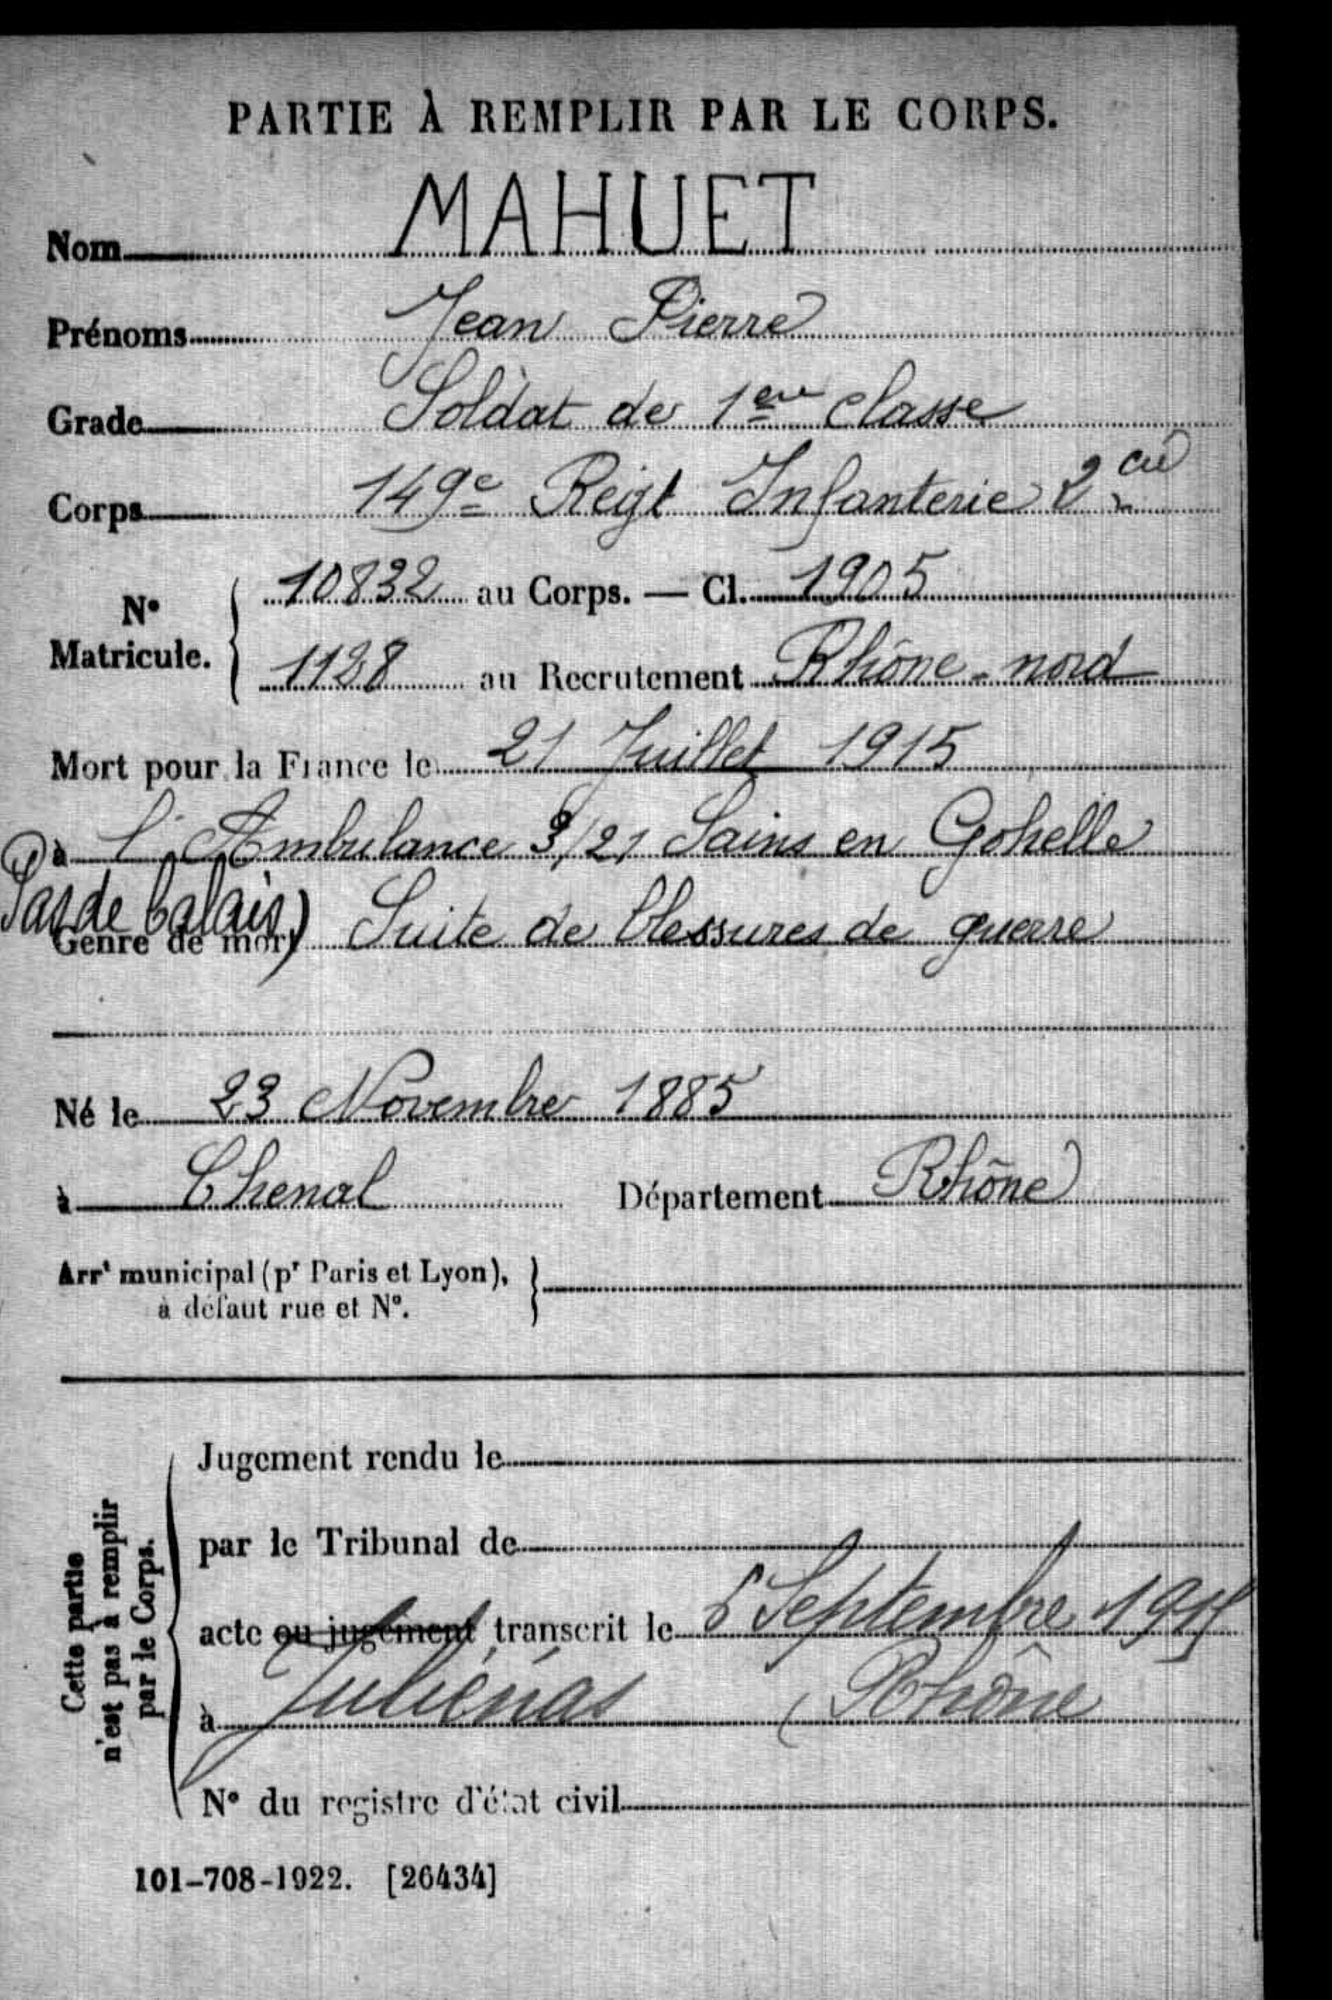 PARTIE À REMPLIR PAR LE CORPS.
Nom MAHUET
Prénoms Jean Pierre
Grade Soldat de 1ere classe
Corps 149e Regt Infanterie 2 cie
N° Matricule. { 10832 au Corps. — Cl. 1905
1128 au Recrutement Rhône-nord
Mort pour la France le 21 Juillet 1915
à l'Ambulance 3/21 Sains en Gohelle
Pas de Calais)
Genre de mort Suite de blessures de guerre
Né le 23 Novembre 1885
à Chenal Département Rhône
Arrt municipal (pr Paris et Lyon), }
à défaut rue et N°.
Cette partie
n'est pas à remplir
par le Corps.
Jugement rendu le
par le Tribunal de
acte ou jugement transcrit le Septembre
à Juliénas (Rhône
N° du registre d'état civil
101-708-1922. [26434]